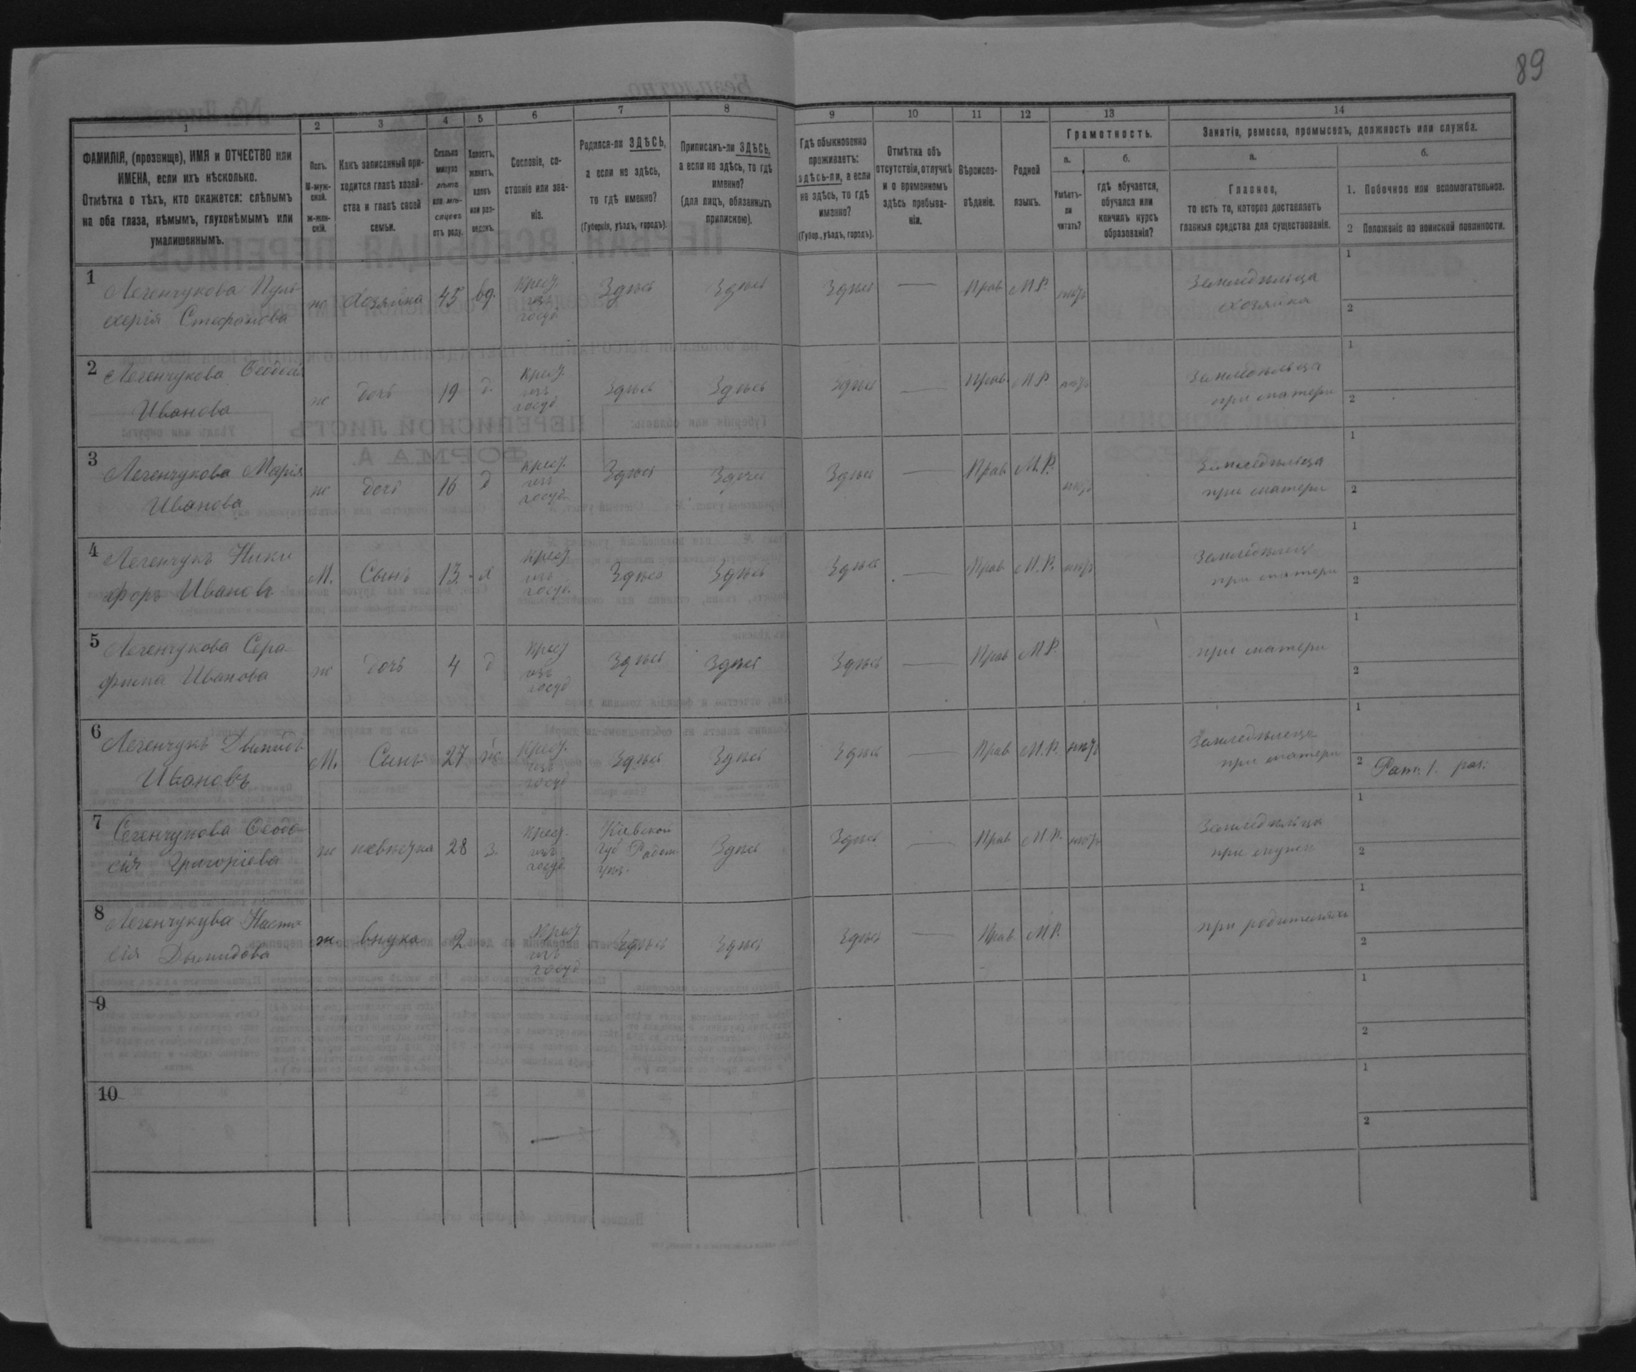 89
1 2 3 4 5 6 7 8 9 10 11 12 13 14
ФАМИЛІЯ, (прозвище), ИМЯ и ОТЧЕСТВО или
ИМЕНА, если ихъ нѣсколько.
Отмѣтка о тѣхъ, кто окажется: слѣпымъ
на оба глаза, нѣмымъ, глухонѣмымъ или
умалишеннымъ.
Полъ.
М-муж-
ской.
ж-жен-
скій.
Какъ записанный при-
ходится главѣ хозяй-
ства и главѣ своей
семьи.
Сколько
минуло
лѣтъ
или мѣ-
сяцевъ
отъ роду.
Холостъ,
женатъ,
вдовъ
или раз-
веденъ.
Сословіе, со-
стояніе или зва-
ніе.
Родился-ли ЗДѢСЬ,
а если не здѣсь,
то гдѣ именно?
(Губернія, уѣздъ, городъ).
Приписанъ-ли ЗДѢСЬ,
а если не здѣсь, то гдѣ
именно?
(для лицъ, обязанныхъ
припискою).
Гдѣ обыкновенно
проживаетъ:
здѣсь-ли, а если
не здѣсь, то гдѣ
именно?
(Губер., уѣздъ, городъ).
Отмѣтка объ
отсутствіи, отлучкѣ
и о временномъ
здѣсь пребыва-
ніи.
Вѣроиспо-
вѣданіе.
Родной
языкъ.
Грамотность.
а.
Умѣетъ-
ли
читать?
б.
гдѣ обучается,
обучался или
кончилъ курсъ
образованія?
Занятіе, ремесло, промыселъ, должность или служба.
а.
Главное,
то есть то, которое доставляетъ
главныя средства для существованія.
б.
1. Побочное или вспомогательное.
2 Положеніе по воинской повинности.
1 Легенчукова Пуль
херія Стефанова
же Хозяйка 45 вд. Крест. изъ госуд Здѣсь Здѣсь Здѣсь — Прав М.Р. Земледѣлица хозяйка
2 Легенчукова
Иванова
же дочь 19 д. Крест. изъ госуд Здѣсь Здѣсь Здѣсь — Прав. М.Р. Земледѣлица при матери
3 Легенчукова Марія
Иванова
же дочь 16 д Крест. изъ госуд Здѣсь Здѣсь Здѣсь — Прав М.Р. Земледѣлица при матери
4 Легенчукъ Ники
форъ Ивановъ
М. Сынъ 13 Крест. изъ госуд. Здѣсь Здѣсь Здѣсь — Прав М.Р. Земледѣлецъ при матери
5 Легенчукова Сера
фима Иванова
же дочь 4 д Крест. изъ госуд Здѣсь Здѣсь Здѣсь — Прав М.Р. при матери
6 Легенчукъ
Ивановъ
М. Сынъ 27 Крест. изъ госуд Здѣсь Здѣсь Здѣсь — Прав М.Р. Земледѣлецъ при матери
2 Рат. 1. раз.
7 Легенчукова Ѳеодо-
сія Григоріева
же невѣстка 28 з. Крест. изъ госуд Кіевской
губ Радом.
Здѣсь Здѣсь — Прав М.Р. Земледѣлица при мужѣ
8 Легенчукува Наста
сія Дымидова
ж внука 2 Крест. изъ госуд Здѣсь Здѣсь Здѣсь — Прав М.Р. при родителяхъ
9
10